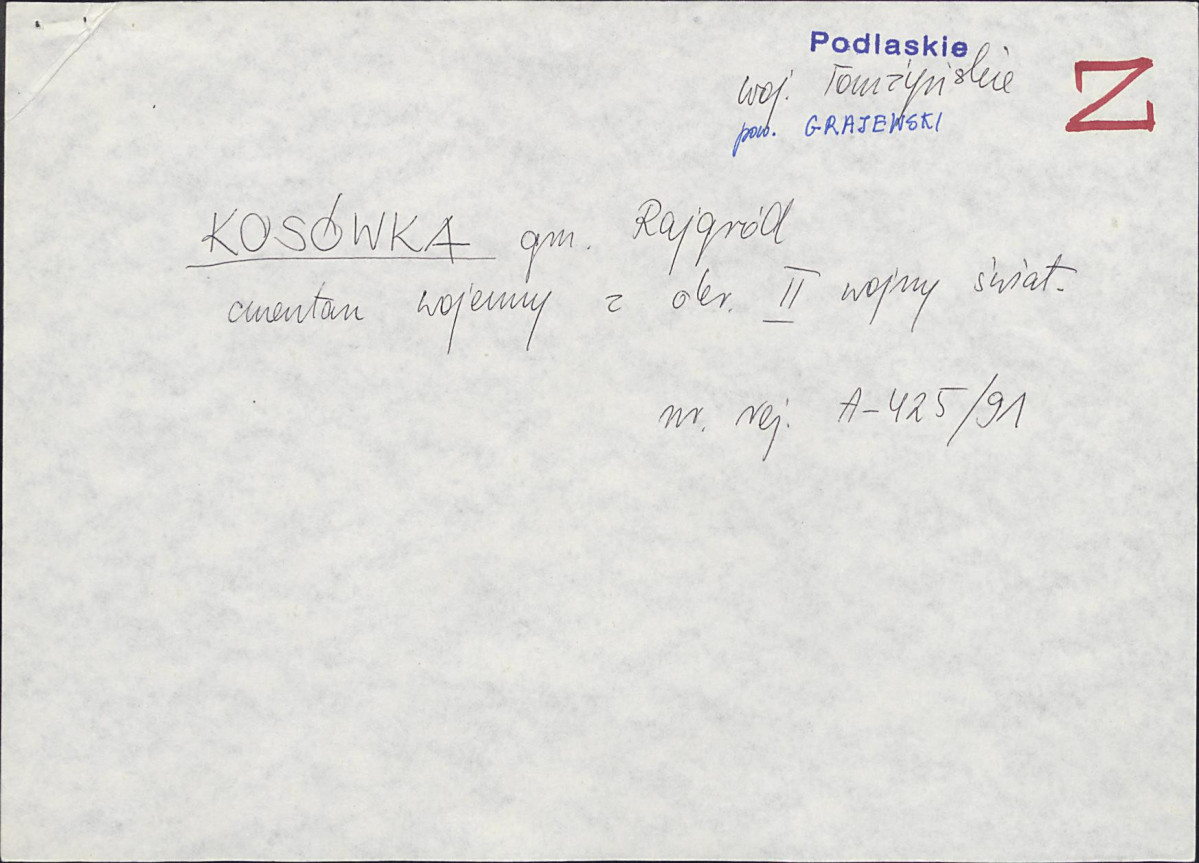 Podlaskie
woj. Łomżyńskie
pow. GRAJEWSKI
Z
KOSÓWKA gm. Rajgród
cmentarz wojenny z okr. II wojny świat.
nr. rej. A-425/91